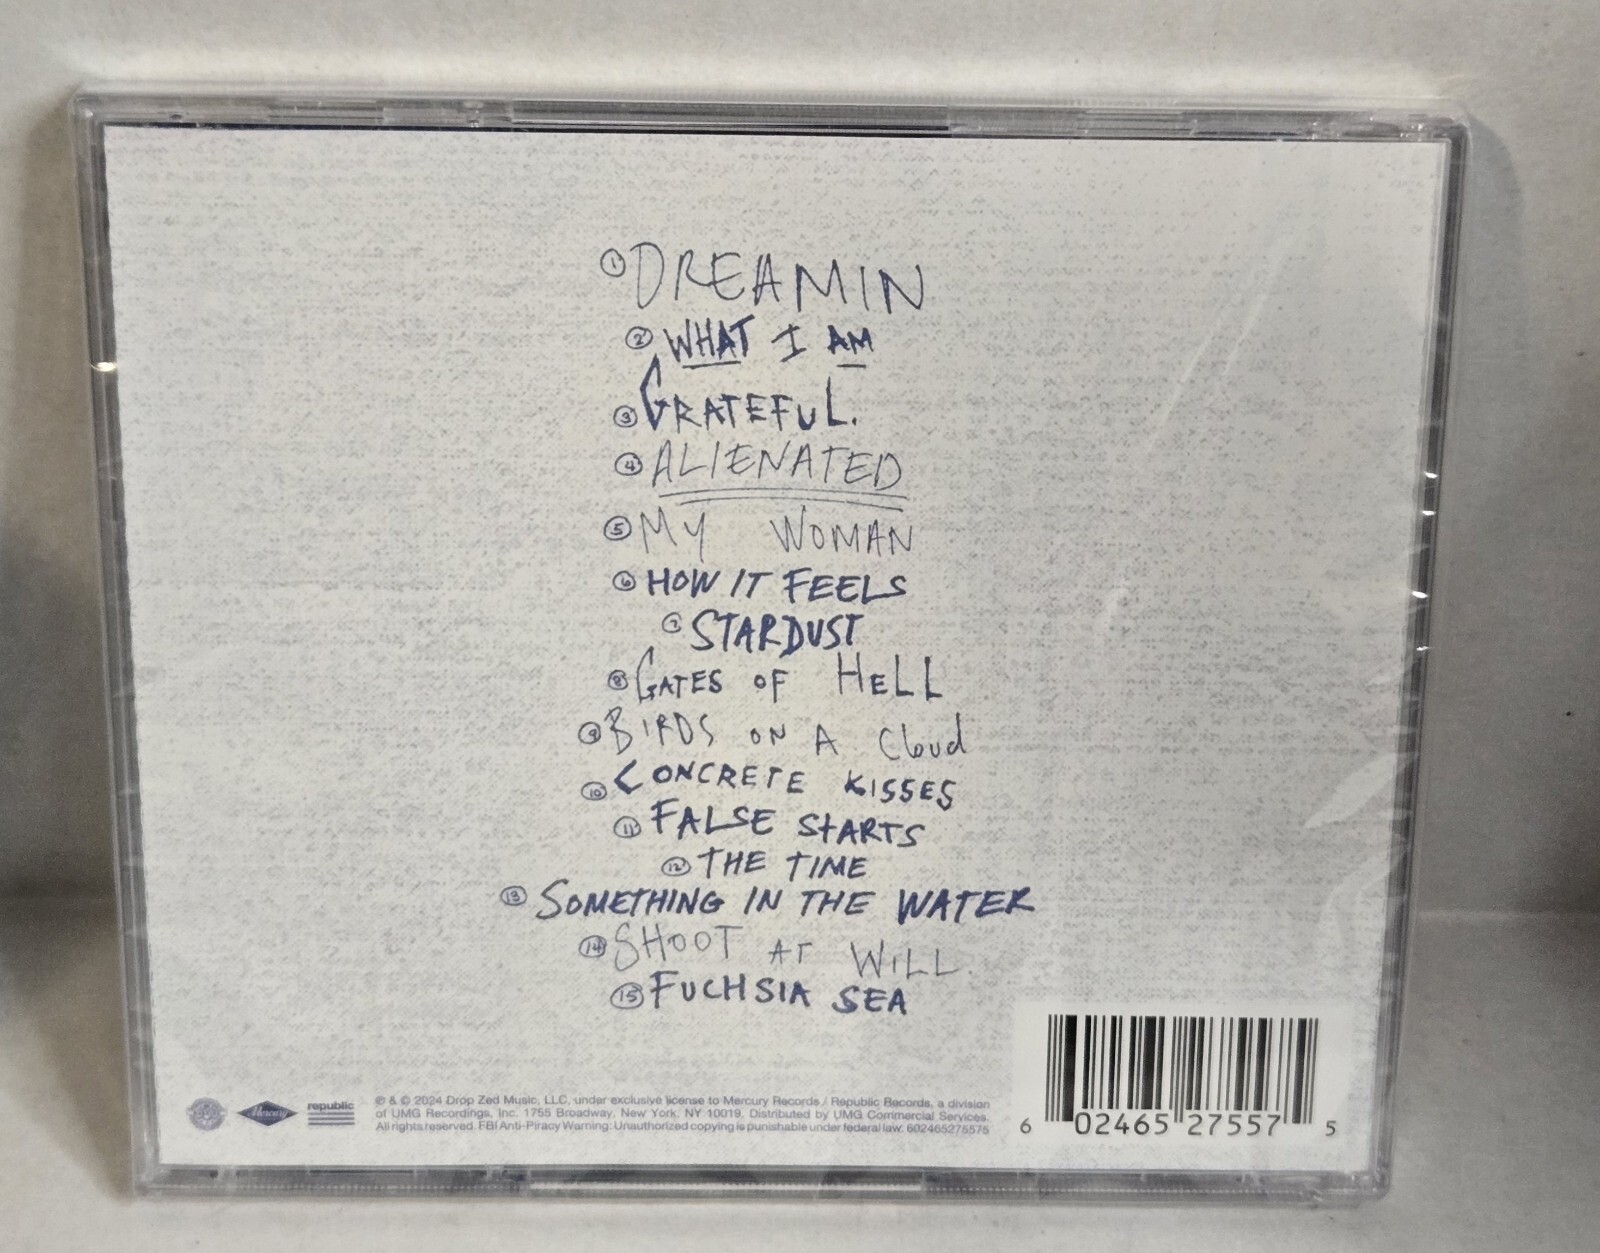 ① DREAMIN
② WHAT I AM
③ GRATEFUL.
④ ALIENATED
⑤ MY WOMAN
⑥ HOW IT FEELS
⑦ STARDUST
⑧ GATES OF HELL
⑨ BIRDS ON A Cloud
⑩ CONCRETE KISSES
⑪ FALSE STARTS
⑫ THE TIME
⑬ SOMETHING IN THE WATER
⑭ SHOOT AT WILL.
⑮ FUCHSIA SEA
Mercury
republic
℗ & © 2024 Drop Zed Music, LLC, under exclusive license to Mercury Records / Republic Records, a division
of UMG Recordings, Inc. 1755 Broadway, New York, NY 10019. Distributed by UMG Commercial Services.
All rights reserved. FBI Anti-Piracy Warning: Unauthorized copying is punishable under federal law. 602465275575
6 02465 27557 5